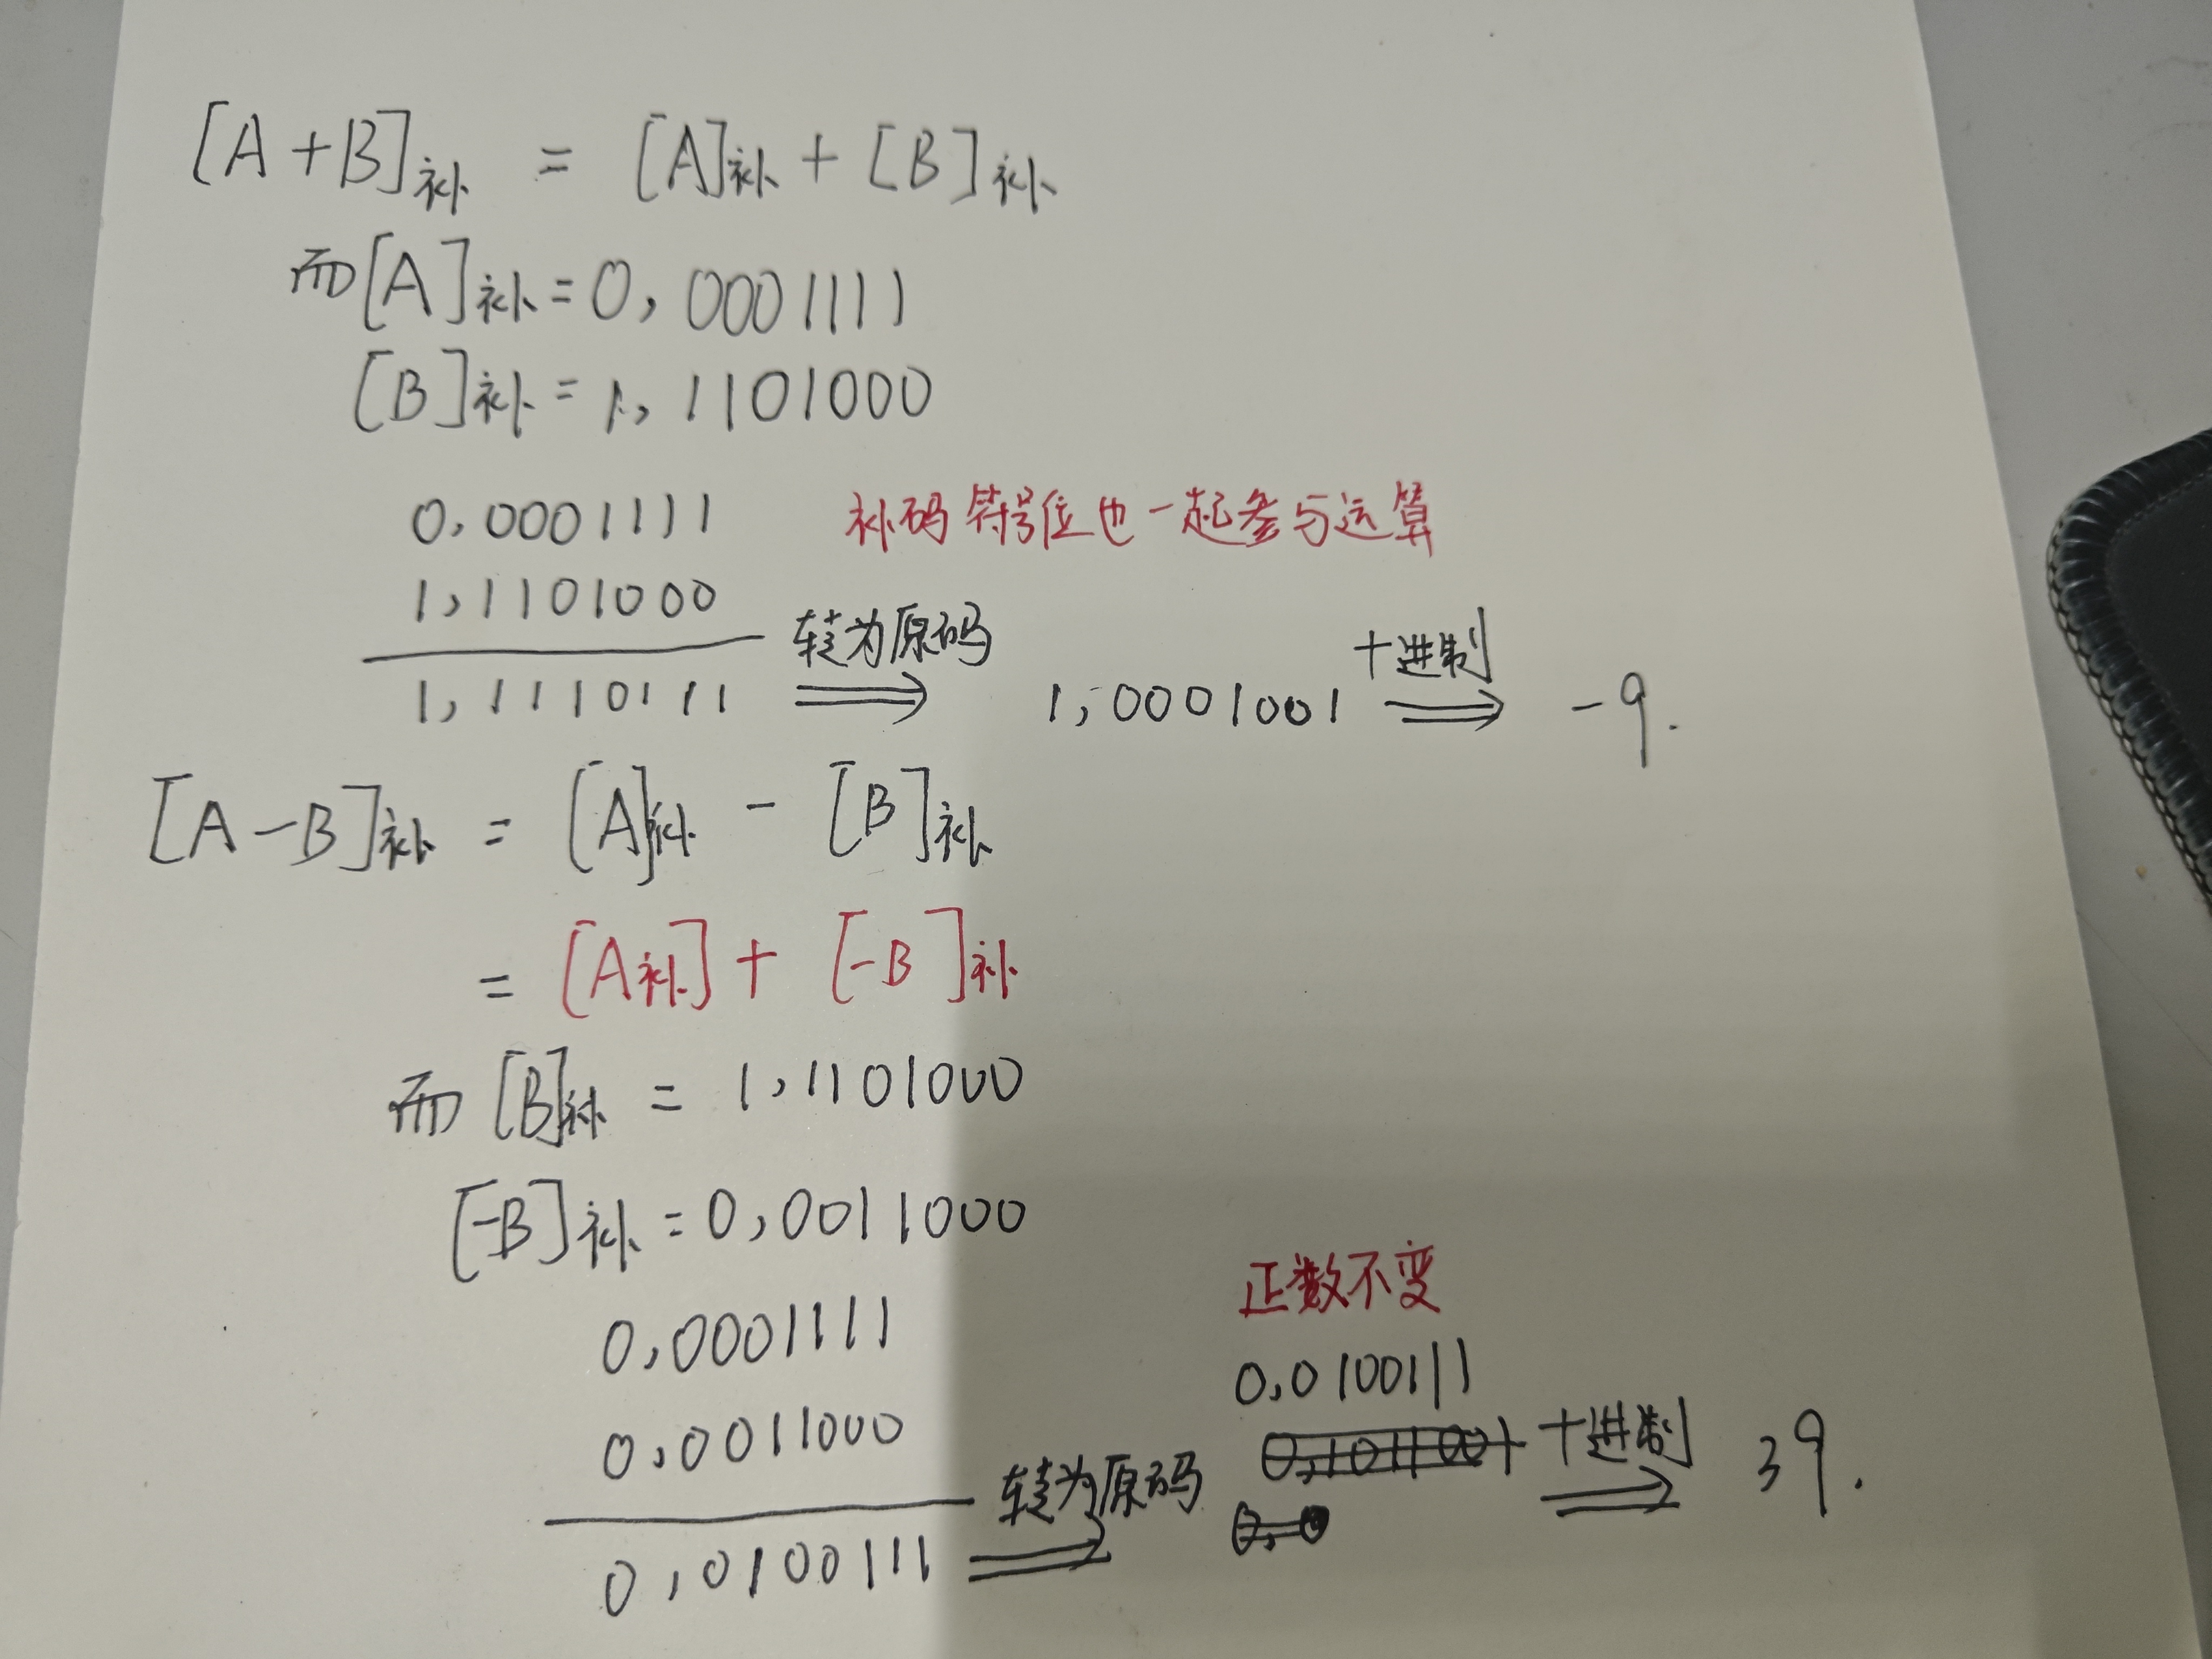 [A+B]补 = [A]补 + [B]补
而[A]补=0,0001111
[B]补=1,1101000
0,0001111 补码符号位也一起参与运算
1,1101000
转为原码 十进制
1,1110111 ⟹ 1,0001001 ⟹ -9.
[A-B]补 = [A]补 - [B]补
= [A补] + [-B]补
而[B]补 = 1,1101000
[-B]补=0,0011000
正数不变
0,0001111
0,0100111
0,0011000
转为原码 十进制 39.
0,0100111 ⟹ ⟹